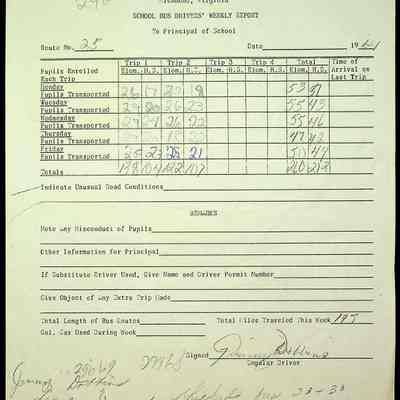 Richmond, Virginia
SCHOOL BUS DRIVERS' WEEKLY REPORT
To Principal of School
Route No. 25 Date 19
Trip 1 Trip 2 Trip 3 Trip 4 Total Time of
Pupils Enrolled Elem. H.S. Elem. H.S. Elem. H.S. Elem. H.S. Elem. H.S. Arrival on
Each Trip Last Trip
Monday
Pupils Transported 26 17 27 53
Tuesday
Pupils Transported 29 20 26 23 55 43
Wednesday
Pupils Transported 29 24 26 22 55 46
Thursday
Pupils Transported 47 42
Friday
Pupils Transported 25 23 25 21 50 44
Totals
Indicate Unusual Road Conditions
REMARKS
Note Any Misconduct of Pupils
Other Information for Principal
If Substitute Driver Used, Give Name and Driver Permit Number
Give Object of Any Extra Trip Made
Total Length of Bus Routes Total Miles Traveled This Week 195
Gal. Gas Used During Week
Signed Jimmy Dobbins
Regular Driver
Jimmy Dobbins